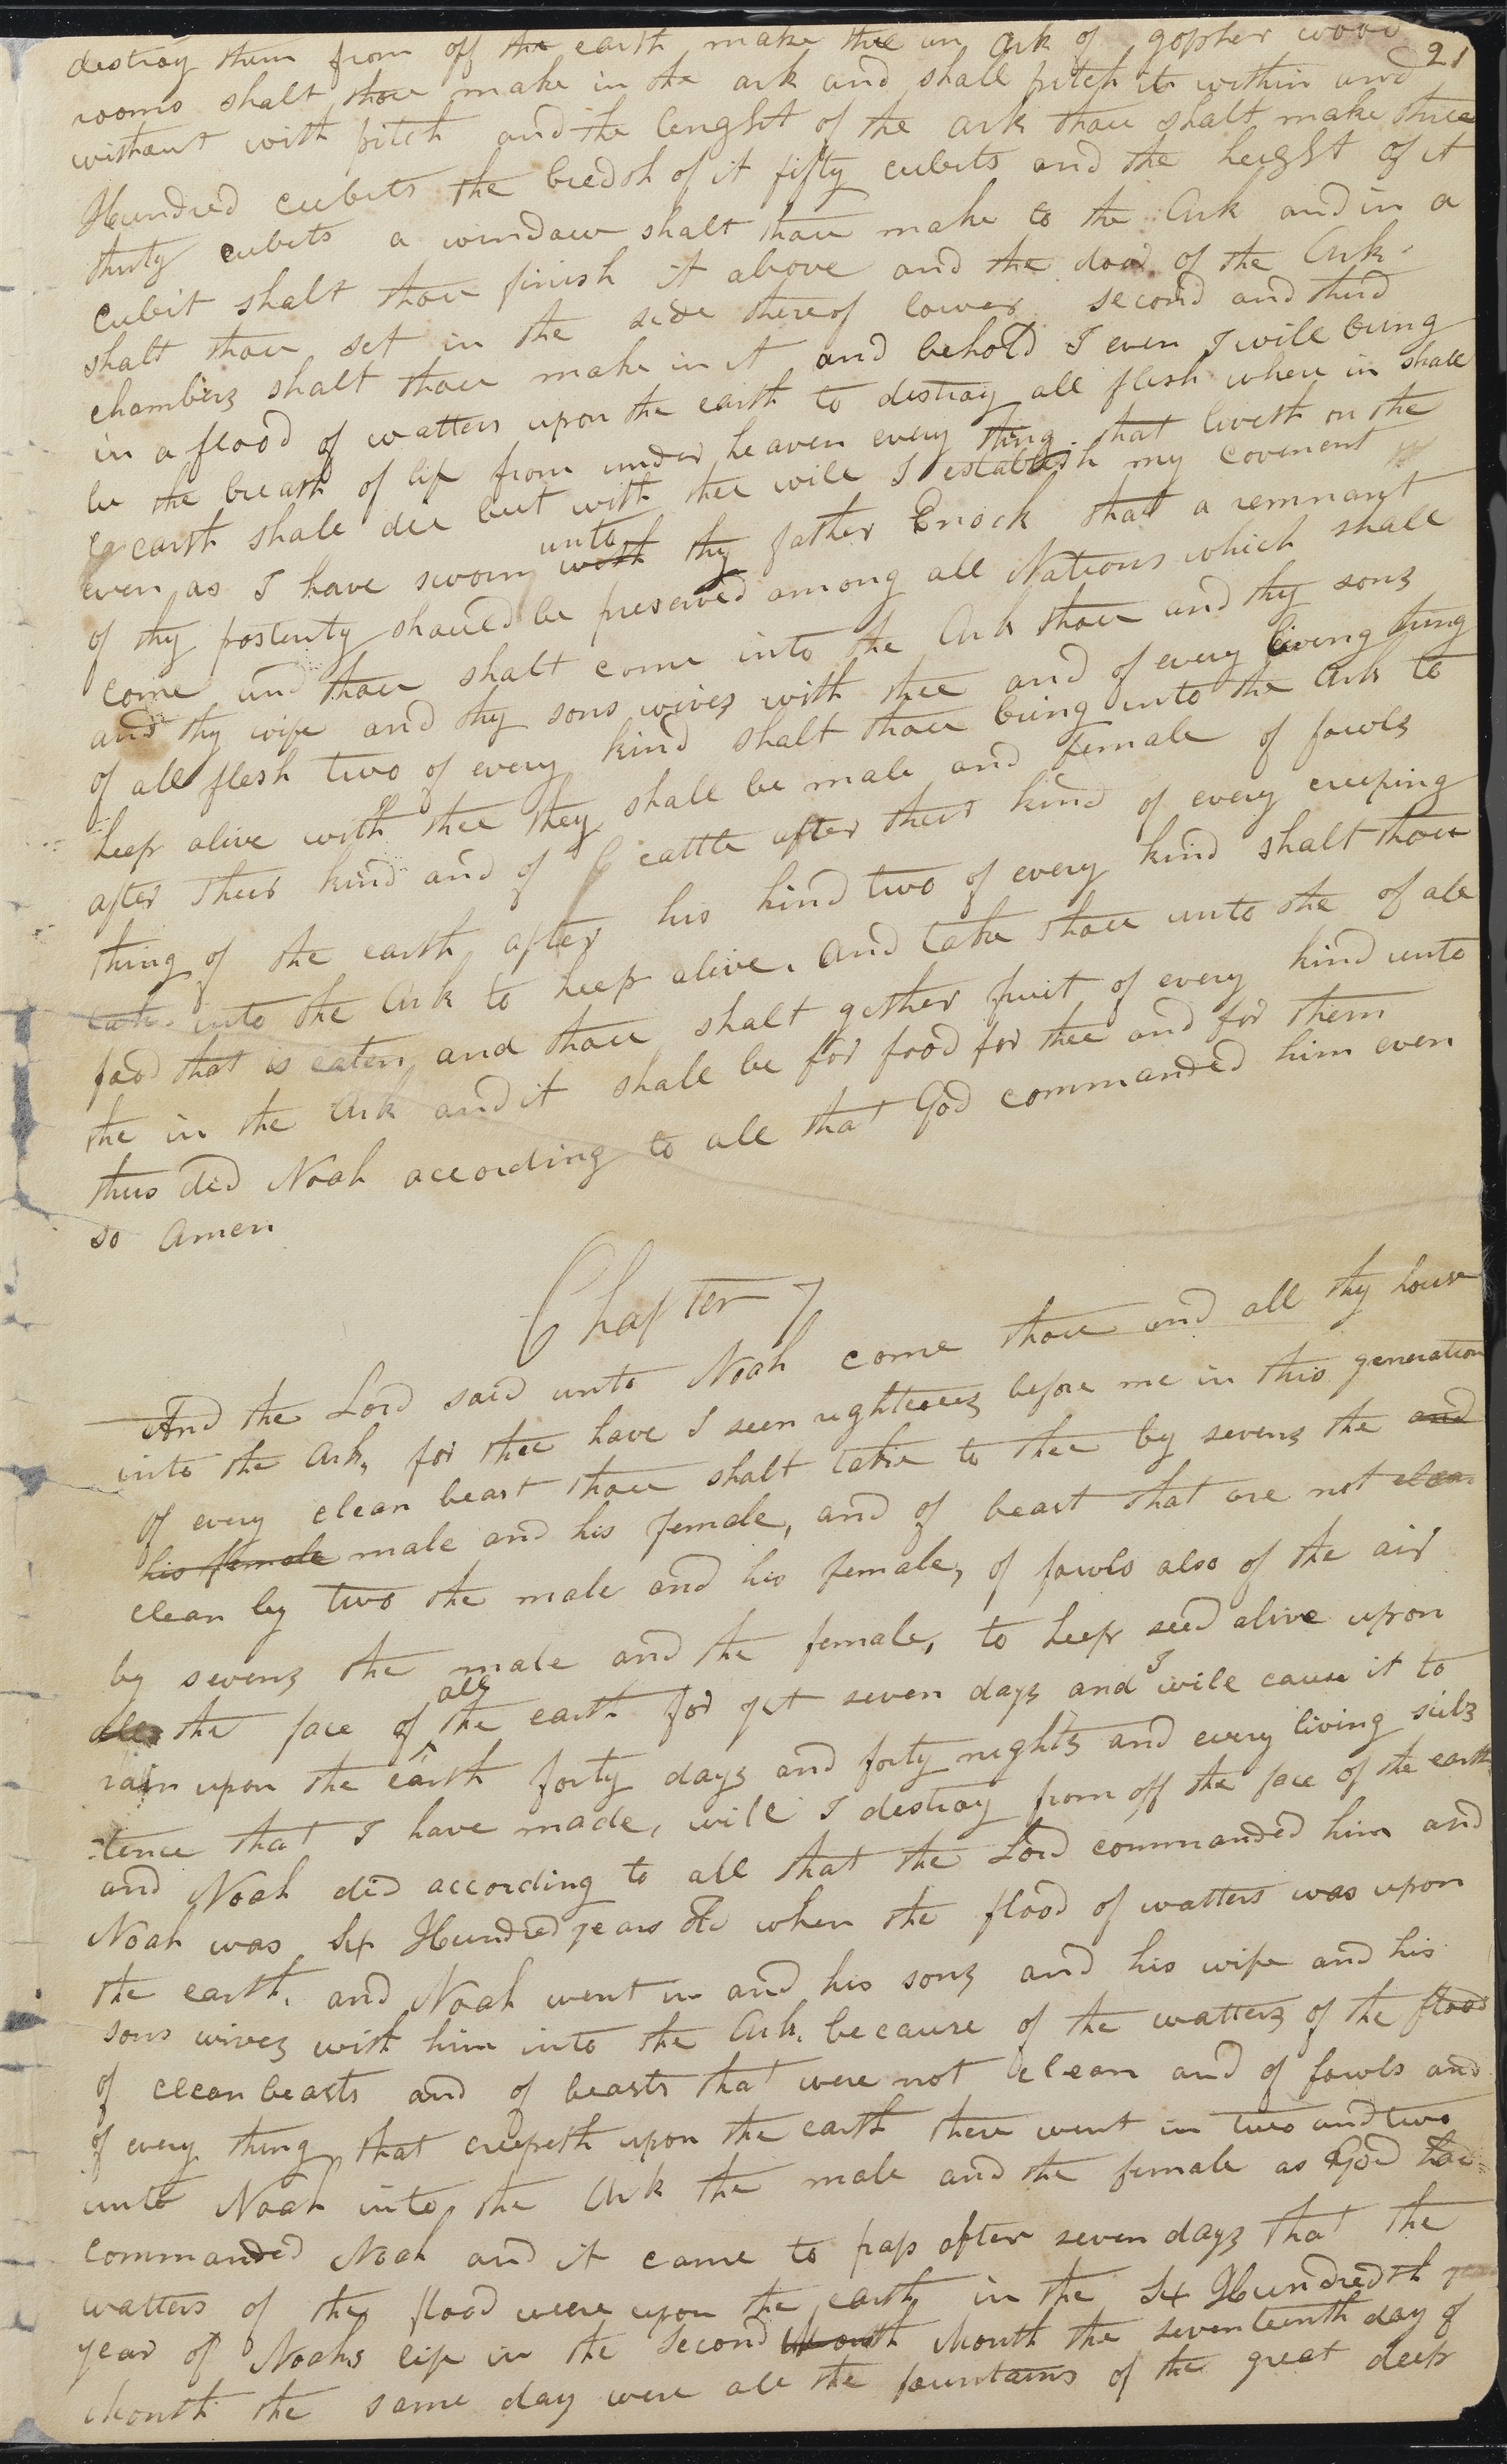 destroy them from off the earth make thee an Ark of gopher wood 21
rooms shalt thou make in the ark and shall pitch it within and
without with pitch and the lenght of the ark thou shalt make three
Hundred cubits the bredoh of it fifty cubits and the height of it
thirty cubits a window shalt thou make to the Ark and in a
cubit shalt thou finish it above and the door of the Ark
shalt thou set in the side thereof lower second and third
chambers shalt thou make in it and behold I even I will bring
in a flood of watters upon the earth to destroy all flesh where in shall
be the breath of life from under heaven every thing that liveth on the
earth shall die but with thee will I establish my covenent
even as I have sworn unto with thy father Enock that a remnant
of thy posterity should be preserved among all Nations which shall
come and thou shalt come into the Ark thou and thy sons
and thy wife and thy sons wives with thee and of every living thing
of all flesh two of every kind shalt thou bring into the Ark to
keep alive with thee they shall be male and female of fowls
after their kind and of cattle after their kind of every creeping
thing of the earth after his kind two of every kind shalt thou
take into the Ark to keep alive. and take thou unto the of all
food that is eaten and thou shalt gether fruit of every kind unto
the in the Ark and it shall be for food for thee and for them
thus did Noah according to all that God commanded him even
so Amen
Chapter 7
And the Lord said unto Noah come thou and all thy house
into the Ark, for thee have I seen righteous before me in this generation
of every clean beast thou shalt take to thee by sevens the and
his female male and his female, and of beast that are not clean
clean by two the male and his female, of fowls also of the air
by sevens the male and the female, to keep seed alive upon
all the face of all the earth for yet seven days and I will cause it to
rain upon the earth forty days and forty nights and every living subs
tence that I have made, will I destroy from off the face of the earth
and Noah did according to all that the Lord commanded him and
Noah was six Hundred years old when the flood of watters was upon
the earth. and Noah went in and his sons and his wife and his
sons wives with him into the Ark. because of the watters of the flood
of clean beasts and of beasts that were not clean and of fowls and
of every thing that creepeth upon the earth there went in two and two
unto Noah into the Ark the male and the female as God had
commanded Noah and it came to pass after seven days that the
watters of the flood were upon the earth in the six Hundredth
year of Noahs life in the second Month Month the seventeenth day of
Month the same day were all the fountains of the great deep